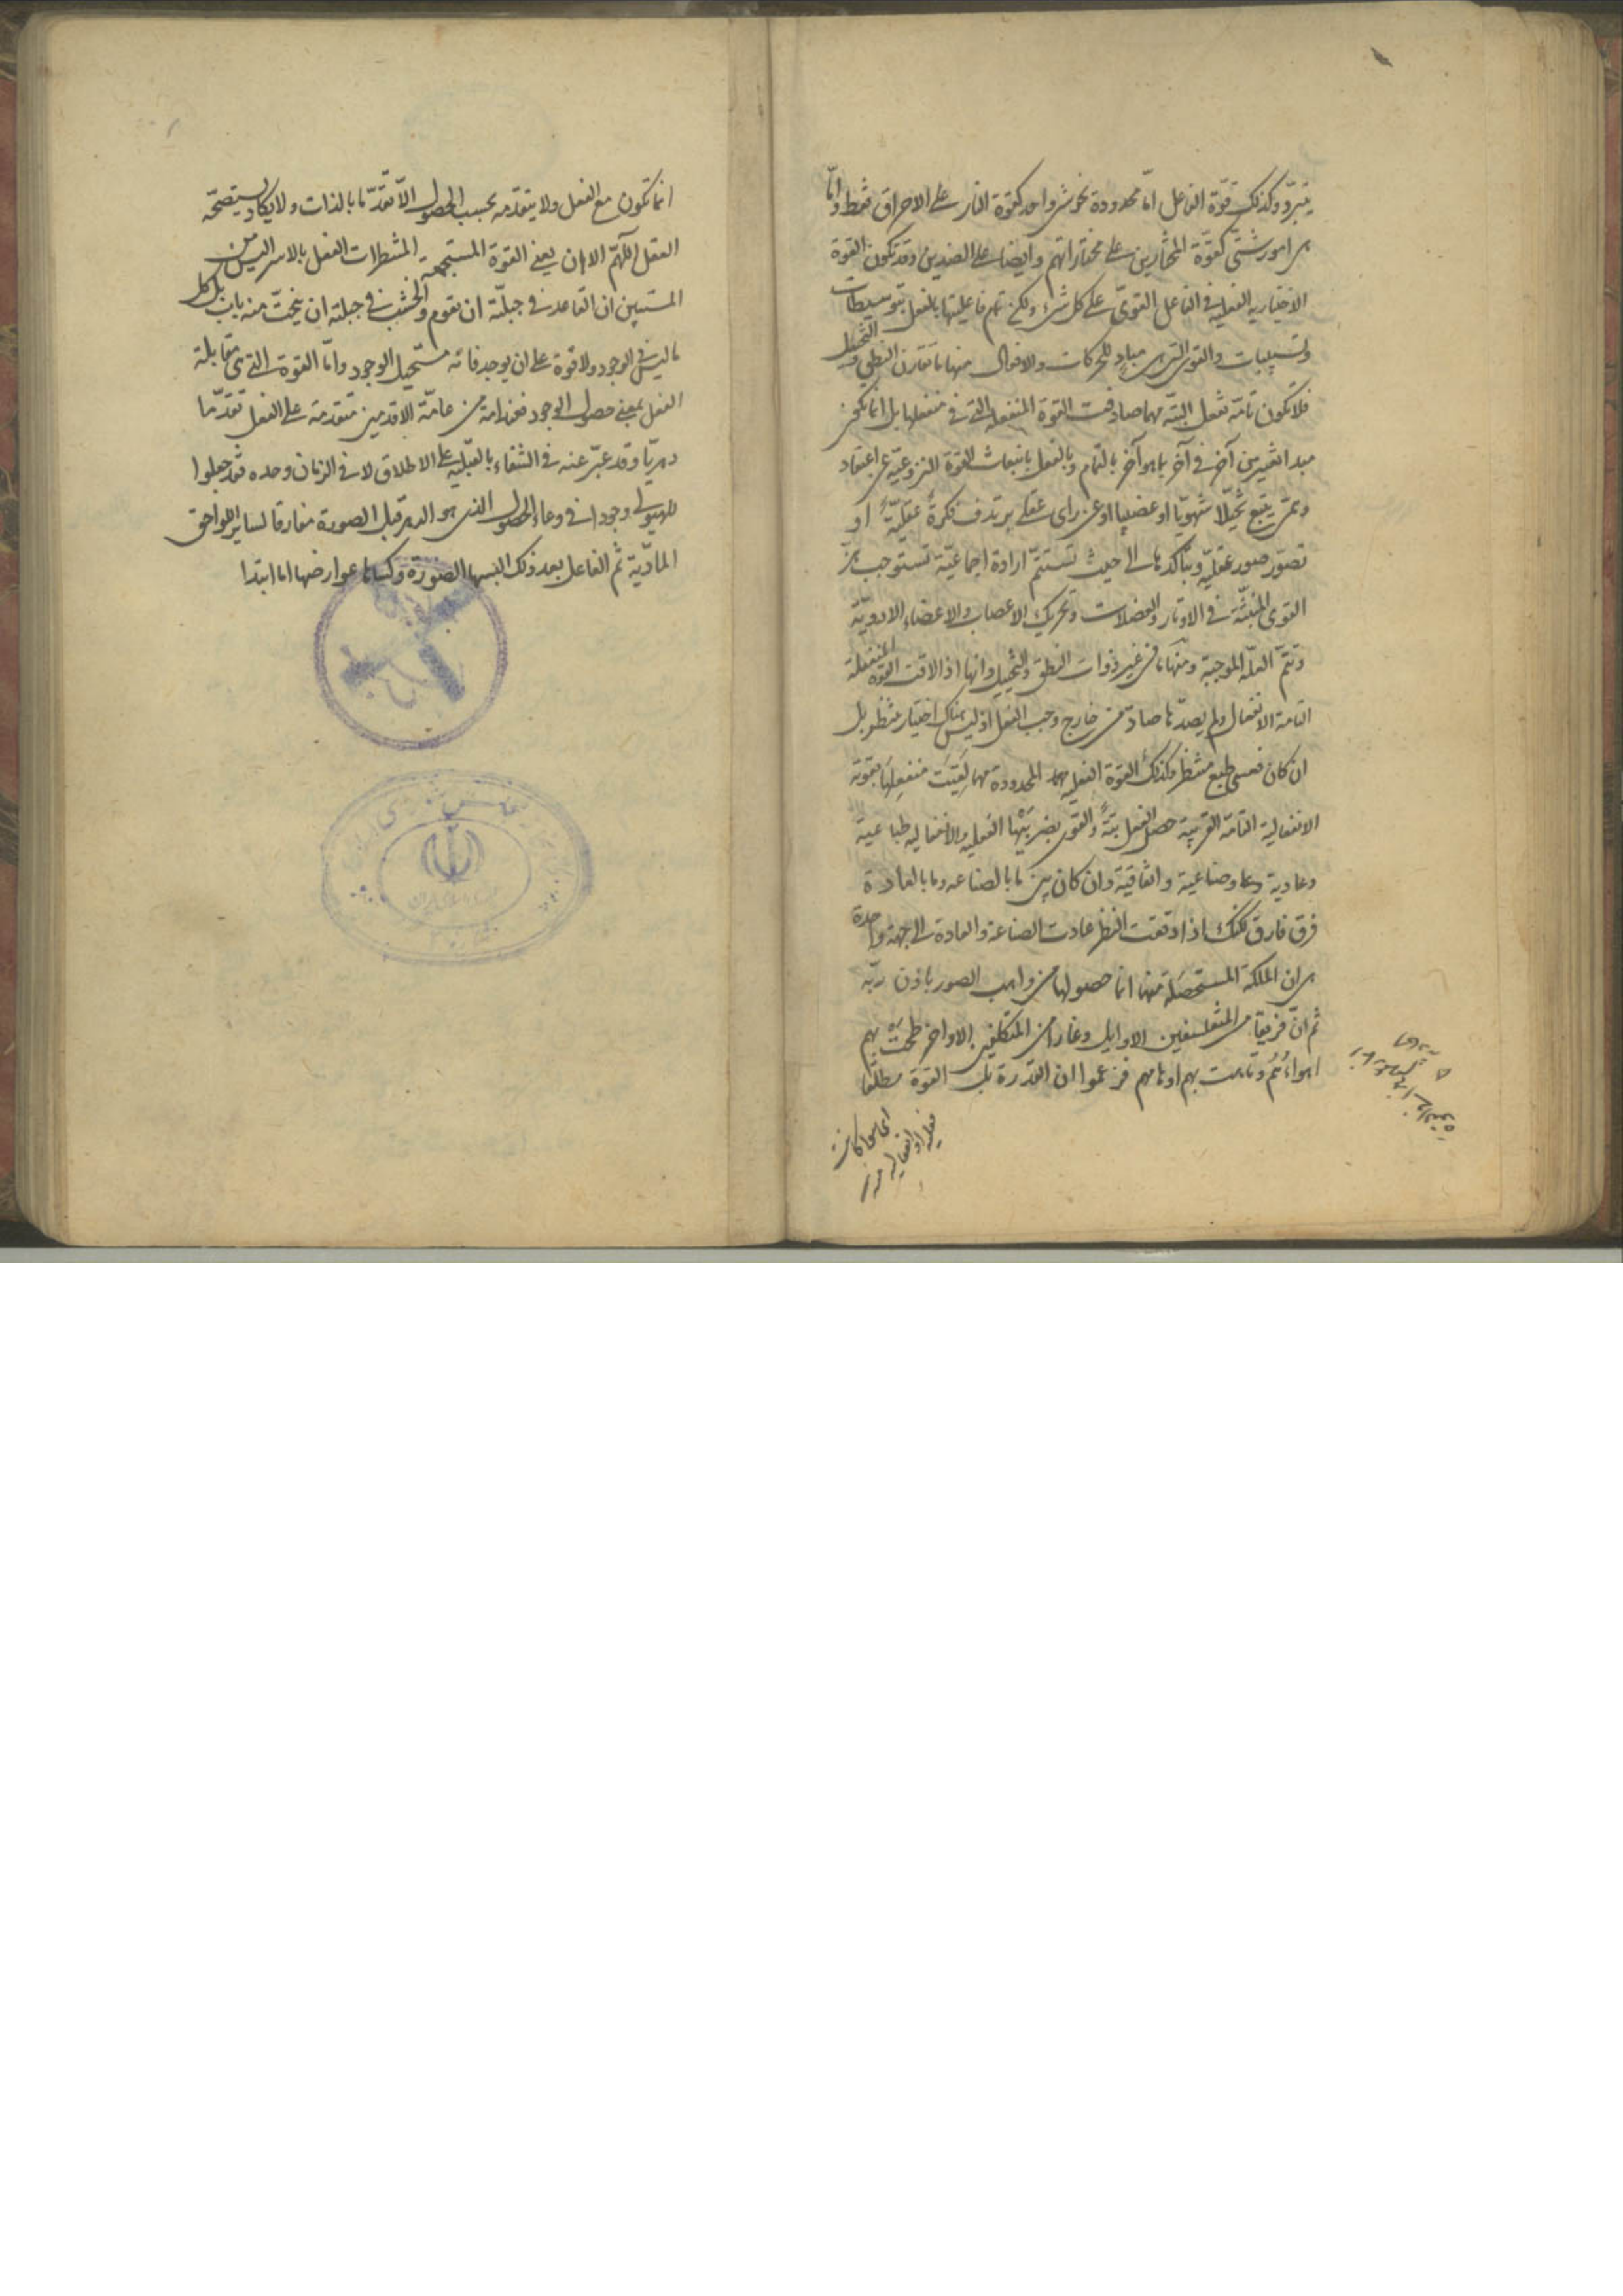 يتبرّد وكذلك قوّة الفاعل امّا محدودة نحو شىء واحد كقوة النار على الاحراق فقط وامّا
على امور شتّى كقوّة المختارين على مختاراتهم وايضا على الضدين وقد تكون القوة
الاختيارية الفعلية فى الفاعل القوىّ على كل شىء ولكن تتم فاعليتها بالفعل بتوسيطات
وتسبيبات والقوى التى هى مبادٍ للحركات والافعال منها ما تقارن النطق والتخيل
فلا تكون تامّة تفعل البتّة مهما صادفت القوة المنفعلة التى فى منفعلها بل انما تكون
مبدا تغير من آخر فى آخر بما هو آخر بالتمام وبالفعل بانبعاث القوة النزوعية عن اعتقاد
وهمى يتبع تخيّلا شهويّا او غضبيا او عن راى عقلى يرتدف فكرةً عقليّةً او
تصوّر صور عقليّة وبتأكدها الى حيث تستتمّ ارادة اجماعيّة تستوجب هزّ
القوى المنبثّة فى الاوتار والعضلات وتحريك الاعصاب والاعضاء الادويّة
وتتمّ العلّة الموجبة ومنها ما فى غير ذوات النطق والتخيل وانها اذا لاقت القوة المنفعلة
التامة الانفعال ولم يصدّها صادّ من خارج وجب الفعل اذ ليس هناك اختيار منتظر بل
ان كان فعسى طبع منتظر وكذلك القوة الفعلية المحدودة مهما لَقِيَت منفعِلها بقوته
الانفعالية التامّة القريبة حصل الفعل بتةً والقوى بضربَيْها الفعلية والانفعاليه طباعية
وعادية وصناعية واتفاقية وان كان بين ما بالصناعه وما بالعادة
فرق فارق لكنك اذا دققت النظر عادت الصناعة والعادة الى جهة واحدة
هى ان الملكة المستحصَلة منهما انما حصولها من واهب الصور باذن ربّه
ثم انّ فريقا من المتفلسفين الاوايل وغارا من المتكلفين الاواخر طمَحَتْ بهم
اهواءُهُم وتاهت بهم اوهامهم فزعموا ان القدرة بل القوة مطلقا
فعلية او انفعالية
انما تكون مع الفعل ولا يتقدمه بحسب الحصول الّا تقدّما بالذات ولا يكاد يستصحّه
العقل اللّهمّ الا ان يعنى القوة المستجمعة المنتظرات الفعل بالاسر اليس من
المستبين ان القاعد فى جبلّته ان يقوم والخشب فى جبلته ان ينحتّ منه باب بل كل
ما ليس فى الوجود ولا قوة على ان يوجد فانه مستحيل الوجود وامّا القوة التى مقابلة
الفعل بمعنى حصول الوجود فعند امة من عامّة الاقدمين متقدمة على الفعل تقدّما
دهريّا وقد عبّر عنه فى الشفاء بالقبليّة على الاطلاق لا فى الزمان وحده فقد جعلوا
للهيولى وجودا فى وعاء الحصول الذى هو الدهر قبل الصورة مفارقا لساير اللواحق
المادّية ثم الفاعل بعد ذلك البسها الصورة وكساها عوارضها اما ابتدا